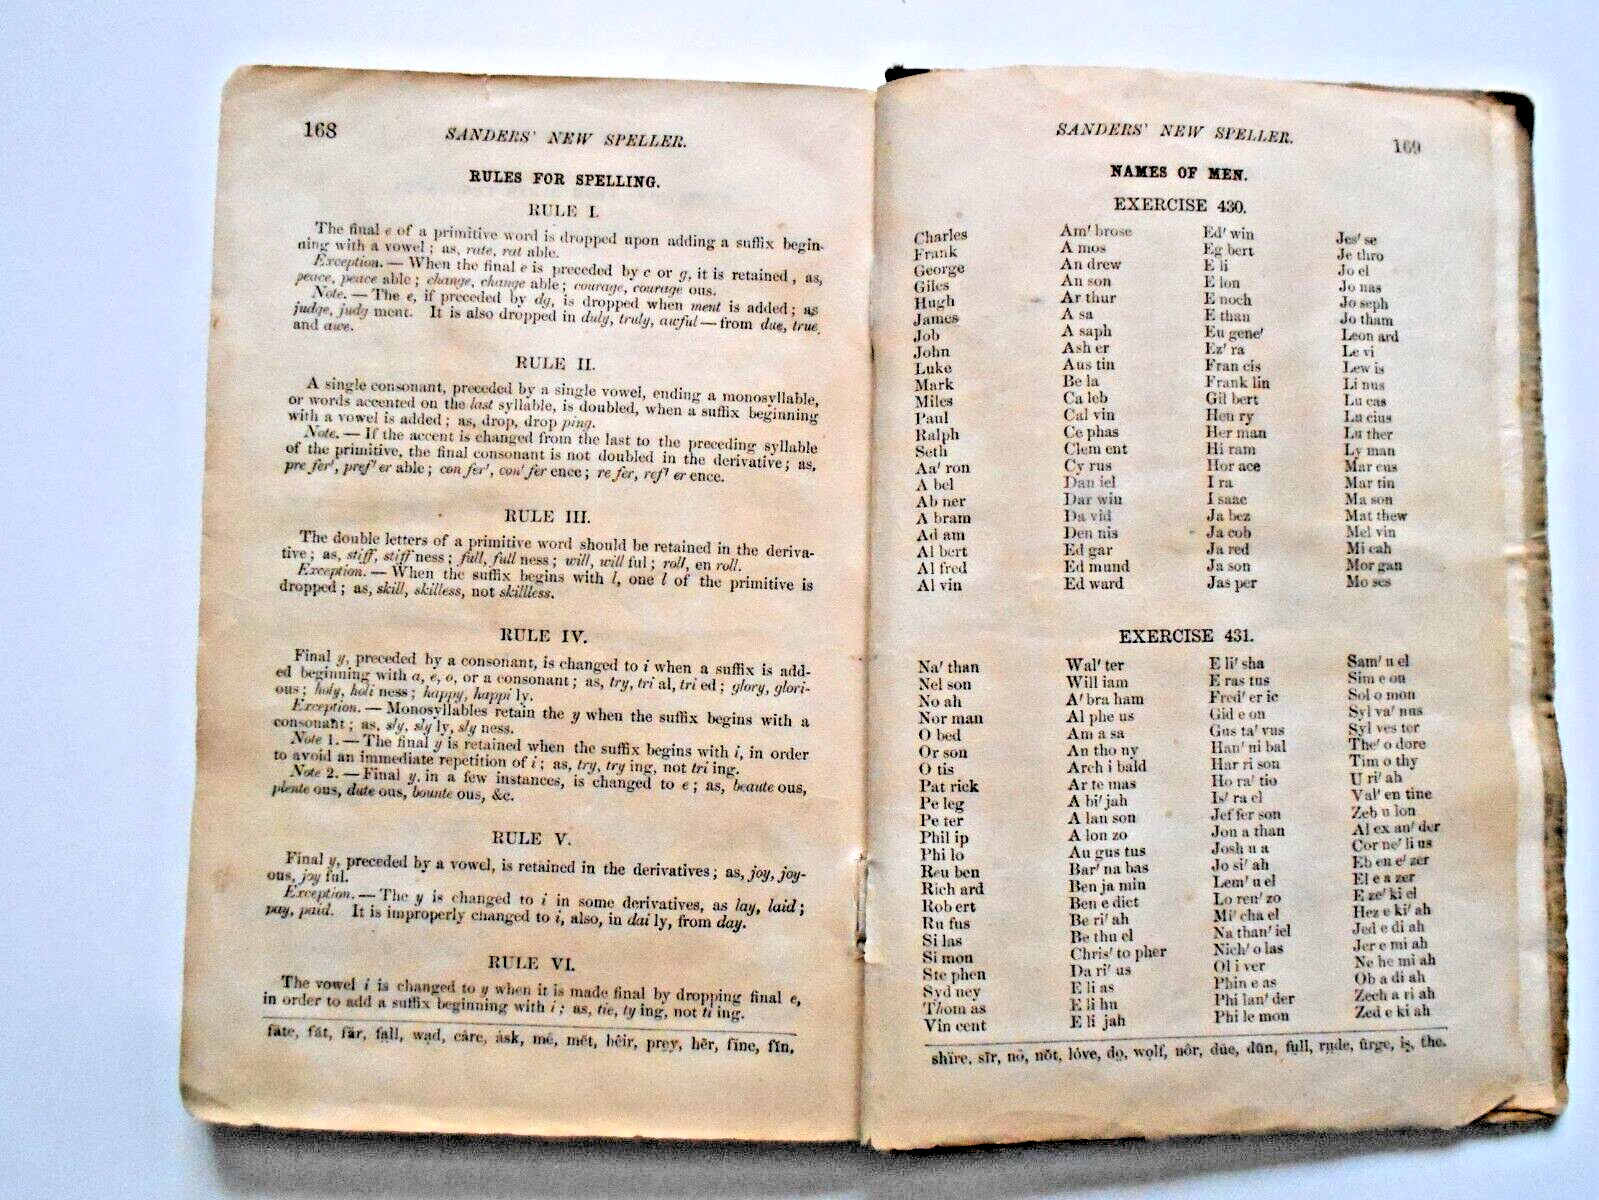 168
SANDERS' NEW SPELLER.
RULES FOR SPELLING.
RULE I.
The final e of a primitive word is dropped upon adding a suffix begin-
ning with a vowel; as, rate, rat able.
Exception. — When the final e is preceded by c or g, it is retained, as,
peace, peace able; change, change able; courage, courage ous.
Note. — The e, if preceded by dg, is dropped when ment is added; as
judge, judg ment. It is also dropped in duly, truly, awful — from due, true,
and awe.
RULE II.
A single consonant, preceded by a single vowel, ending a monosyllable,
or words accented on the last syllable, is doubled, when a suffix beginning
with a vowel is added; as, drop, drop ping.
Note. — If the accent is changed from the last to the preceding syllable
of the primitive, the final consonant is not doubled in the derivative; as,
pre fer', pref' er able; con fer', con' fer ence; re fer, ref' er ence.
RULE III.
The double letters of a primitive word should be retained in the deriva-
tive; as, stiff, stiff ness; full, full ness; will, will ful; roll, en roll.
Exception. — When the suffix begins with l, one l of the primitive is
dropped; as, skill, skilless, not skillless.
RULE IV.
Final y, preceded by a consonant, is changed to i when a suffix is add-
ed beginning with a, e, o, or a consonant; as, try, tri al, tri ed; glory, glori-
ous; holy, holi ness; happy, happi ly.
Exception. — Monosyllables retain the y when the suffix begins with a
consonant; as, sly, sly ly, sly ness.
Note 1. — The final y is retained when the suffix begins with i, in order
to avoid an immediate repetition of i; as, try, try ing, not tri ing.
Note 2. — Final y, in a few instances, is changed to e; as, beaute ous,
plente ous, dute ous, bounte ous, &c.
RULE V.
Final y, preceded by a vowel, is retained in the derivatives; as, joy, joy-
ous, joy ful.
Exception. — The y is changed to i in some derivatives, as lay, laid;
pay, paid. It is improperly changed to i, also, in dai ly, from day.
RULE VI.
The vowel i is changed to y when it is made final by dropping final e,
in order to add a suffix beginning with i; as, tie, ty ing, not ti ing.
fāte, făt, fär, fa̤ll, wạd, câre, ȧsk, mē, mĕt, hêir, prey, hẽr, fīne, fĭn,
SANDERS' NEW SPELLER.
169
NAMES OF MEN.
EXERCISE 430.
Charles
Frank
George
Giles
Hugh
James
Job
John
Luke
Mark
Miles
Paul
Ralph
Seth
Aa' ron
A bel
Ab ner
A bram
Ad am
Al bert
Al fred
Al vin
Am' brose
A mos
An drew
An son
Ar thur
A sa
A saph
Ash er
Aus tin
Be la
Ca leb
Cal vin
Ce phas
Clem ent
Cy rus
Dan iel
Dar win
Da vid
Den nis
Ed gar
Ed mund
Ed ward
Ed' win
Eg bert
E li
E lon
E noch
E than
Eu gene'
Ez' ra
Fran cis
Frank lin
Gil bert
Hen ry
Her man
Hi ram
Hor ace
I ra
I saac
Ja bez
Ja cob
Ja red
Ja son
Jas per
Jes' se
Je thro
Jo el
Jo nas
Jo seph
Jo tham
Leon ard
Le vi
Lew is
Li nus
Lu cas
Lu cius
Lu ther
Ly man
Mar cus
Mar tin
Ma son
Mat thew
Mel vin
Mi cah
Mor gan
Mo ses
EXERCISE 431.
Na' than
Nel son
No ah
Nor man
O bed
Or son
O tis
Pat rick
Pe leg
Pe ter
Phil ip
Phi lo
Reu ben
Rich ard
Rob ert
Ru fus
Si las
Si mon
Ste phen
Syd ney
Thom as
Vin cent
Wal' ter
Will iam
A' bra ham
Al phe us
Am a sa
An tho ny
Arch i bald
Ar te mas
A bi' jah
A lan son
A lon zo
Au gus tus
Bar' na bas
Ben ja min
Ben e dict
Be ri' ah
Be thu el
Chris' to pher
Da ri' us
E li as
E li hu
E li jah
E li' sha
E ras tus
Fred' er ic
Gid e on
Gus ta' vus
Han' ni bal
Har ri son
Ho ra' tio
Is' ra el
Jef fer son
Jon a than
Josh u a
Jo si' ah
Lem' u el
Lo ren' zo
Mi' cha el
Na than' iel
Nich' o las
Ol i ver
Phin e as
Phi lan' der
Phi le mon
Sam' u el
Sim e on
Sol o mon
Syl va' nus
Syl ves ter
The' o dore
Tim o thy
U ri' ah
Val' en tine
Zeb u lon
Al ex an' der
Cor ne' li us
Eb en e' zer
El e a zer
E ze' ki el
Hez e ki' ah
Jed e di ah
Jer e mi ah
Ne he mi ah
Ob a di ah
Zech a ri ah
Zed e ki ah
shïre, sĭr, nō, nŏt, lóve, dọ, wọlf, nôr, dūe, dŭn, fụll, rụde, ûrge, iş, the.